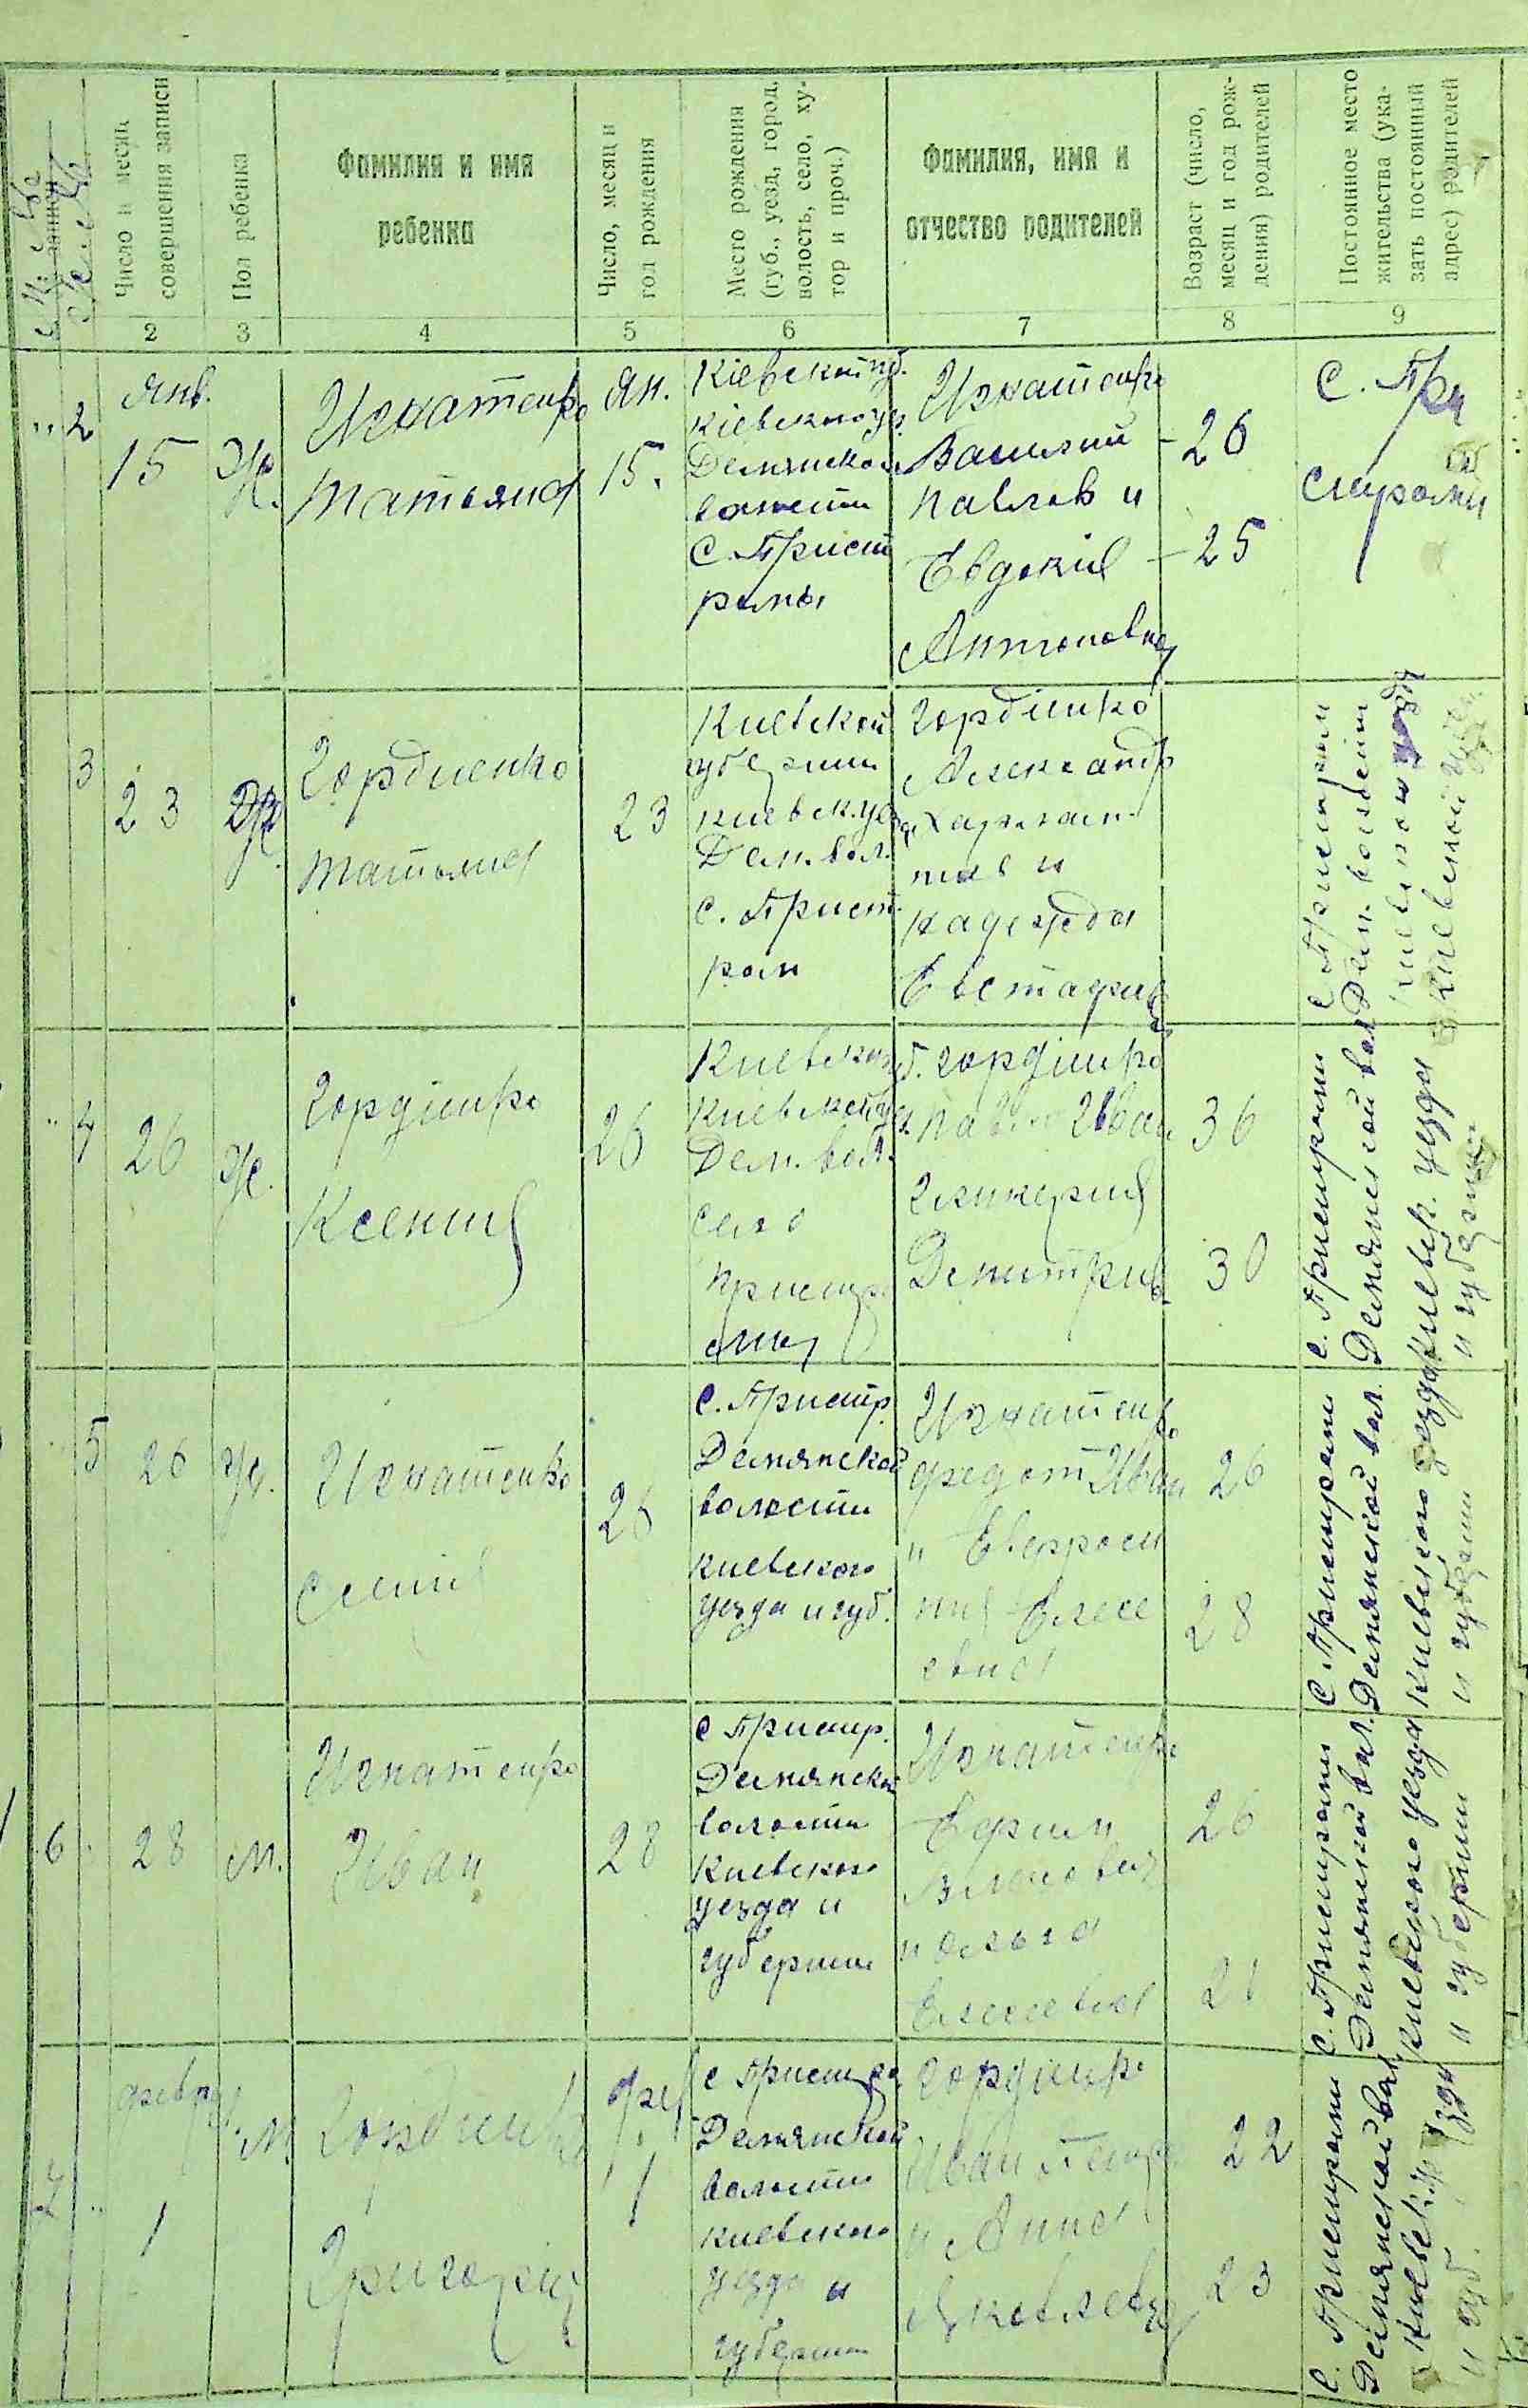 Число и месяц
совершения записи
Пол ребенка
Фамилия и имя
ребенка
Число, месяц и
год рождения
Место рождения
(губ., уезд, город,
волость, село, ху-
тор и проч.)
Фамилия, имя и
отчество родителей
Возраст (число,
месяц и год рож-
дения) родителей
Постоянное место
жительства (ука-
зать постоянный
адрес) родителей
2 3 4 5 6 7 8 9
2
янв.
15
Ж.
Игнатенко
Татьяна
ян.
15.
Кіевской губ.
Кіевского у.
Демянской
волости
С. Прист
ромы
Игнатенко
Василий
Павлов и
Евдокія
Антоновна
26
25
С. При
строми
3
23
Ж.
Гордиенко
Татьяна
23
Киевской
губернии
Киевск. уез
Дем. вол.
С. Прист
ром
Гордіенко
Александр
тов и
Надежда
Евстафиев
С. Пристром
Дем. волости
Киевской
4
26
Ж.
Гордіенко
Ксения
26
Киевской
Дем. вол.
село
Пристр
Гордіенко
Павел Иван
Гликерия
Димитрив
36
30
С. Пристроми
Демянской вол.
Киевск. уезда
и губернии
5
26
Ж.
Игнатенко
26
С. Пристр.
Демянской
волости
Киевского
уезда и губ.
Игнатенко
Федот Иван
и Евфроси
ния Елисе
евна
26
28
С. Пристроми
Демянской вол.
Киевского уезда
и губернии
6
28
м.
Игнатенко
Иван
28
С Пристр.
Демянской
волости
Киевского
уезда и
губернии
Игнатенко
Ефим
и Ольга
Елисеевна
26
21
С. Пристроми
Демянской вол.
Киевского уезда
и губернии
7
февр
1
м
Гордиенко
Григорий
фев
1
С Пристро
Демянской
волости
Киевского
уезда и
губернии
Гордіенко
Иван Петр
и Анна
Яковлевна
22
23
С. Пристроми
Демянской вол.
Киевск. уезда
и губ.